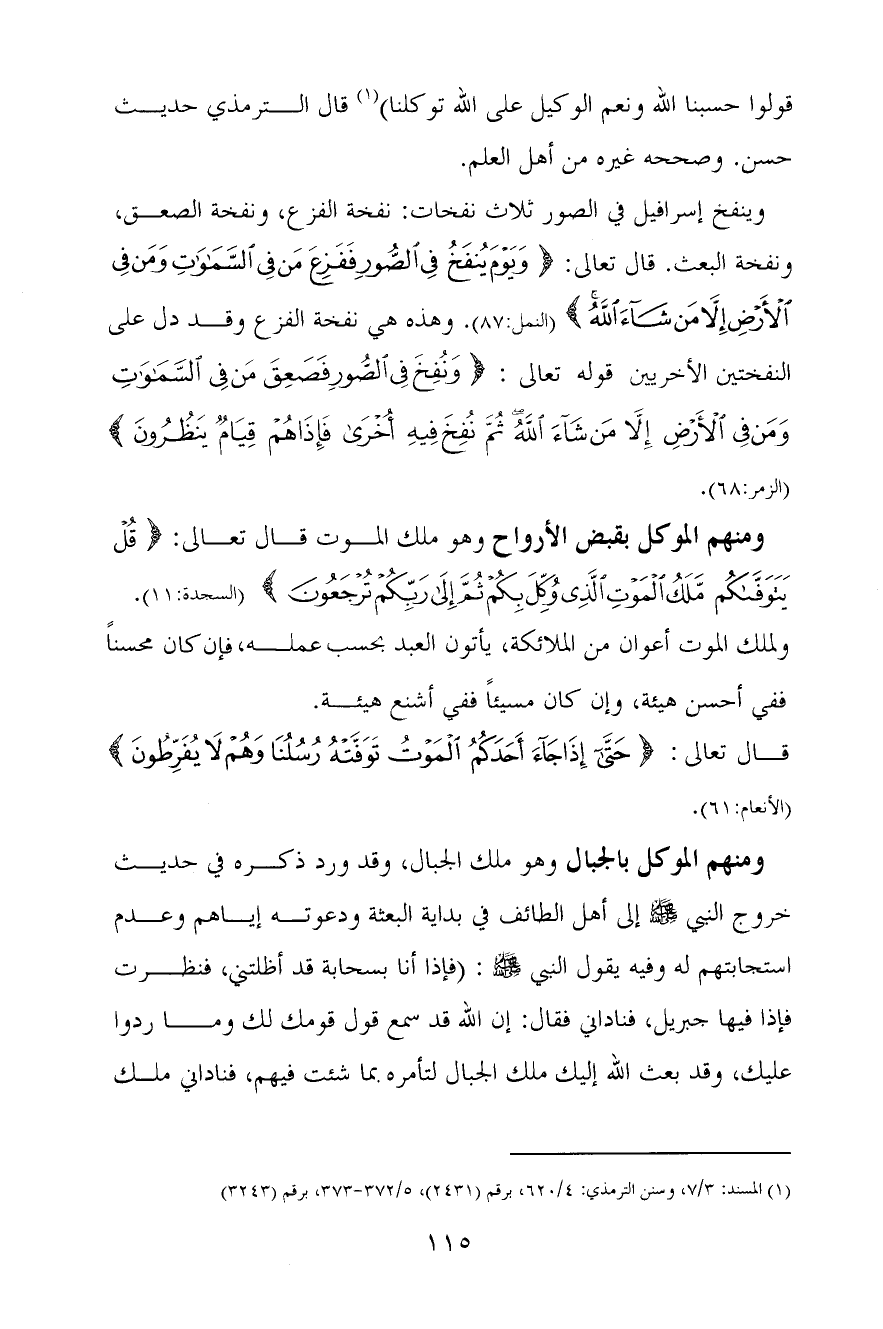 قولوا حسبنا الله ونعم الوكيل على الله توكلنا)(١) قال الـــترمذي حديـــث
حسن. وصححه غيره من أهل العلم.
وينفخ إسرافيل في الصور ثلاث نفخات: نفخة الفزع، ونفخة الصعـــق،
ونفخة البعث. قال تعالى: ﴿ وَيَوْمَ يُنفَخُ فِى ٱلصُّورِ فَفَزِعَ مَن فِى ٱلسَّمَٰوَٰتِ وَمَن فِى
ٱلْأَرْضِ إِلَّا مَن شَآءَ ٱللَّهُ ۚ ﴾ (النمل:٨٧). وهذه هي نفخة الفزع وقـــد دل على
النفختين الأخريين قوله تعالى : ﴿ وَنُفِخَ فِى ٱلصُّورِ فَصَعِقَ مَن فِى ٱلسَّمَٰوَٰتِ
وَمَن فِى ٱلْأَرْضِ إِلَّا مَن شَآءَ ٱللَّهُ ۖ ثُمَّ نُفِخَ فِيهِ أُخْرَىٰ فَإِذَا هُمْ قِيَامٌ يَنظُرُونَ ﴾
(الزمر:٦٨).
ومنهم الموكل بقبض الأرواح وهو ملك المـــوت قـــال تعـــالى: ﴿ قُلْ
يَتَوَفَّىٰكُم مَّلَكُ ٱلْمَوْتِ ٱلَّذِى وُكِّلَ بِكُمْ ثُمَّ إِلَىٰ رَبِّكُمْ تُرْجَعُونَ ﴾ (السجدة:١١).
ولملك الموت أعوان من الملائكة، يأتون العبد بحسب عملـــه، فإن كان محسناً
ففي أحسن هيئة، وإن كان مسيئاً ففي أشنع هيئـــة.
قـــال تعالى : ﴿ حَتَّىٰٓ إِذَا جَآءَ أَحَدَكُمُ ٱلْمَوْتُ تَوَفَّتْهُ رُسُلُنَا وَهُمْ لَا يُفَرِّطُونَ ﴾
(الأنعام:٦١).
ومنهم الموكل بالجبال وهو ملك الجبال، وقد ورد ذكـــره في حديـــث
خروج النبي ﷺ إلى أهل الطائف في بداية البعثة ودعوتـــه إيـــاهم وعـــدم
استجابتهم له وفيه يقول النبي ﷺ : (فإذا أنا بسحابة قد أظلتني، فنظـــرت
فإذا فيها جبريل، فناداني فقال: إن الله قد سمع قول قومك لك ومـــا ردوا
عليك، وقد بعث الله إليك ملك الجبال لتأمره بما شئت فيهم، فناداني ملـــك
(١) المسند: ٧/٣، وسنن الترمذي: ٦٢٠/٤، برقم (٢٤٣١)، ٣٧٢/٥-٣٧٣، برقم (٣٢٤٣)
١١٥